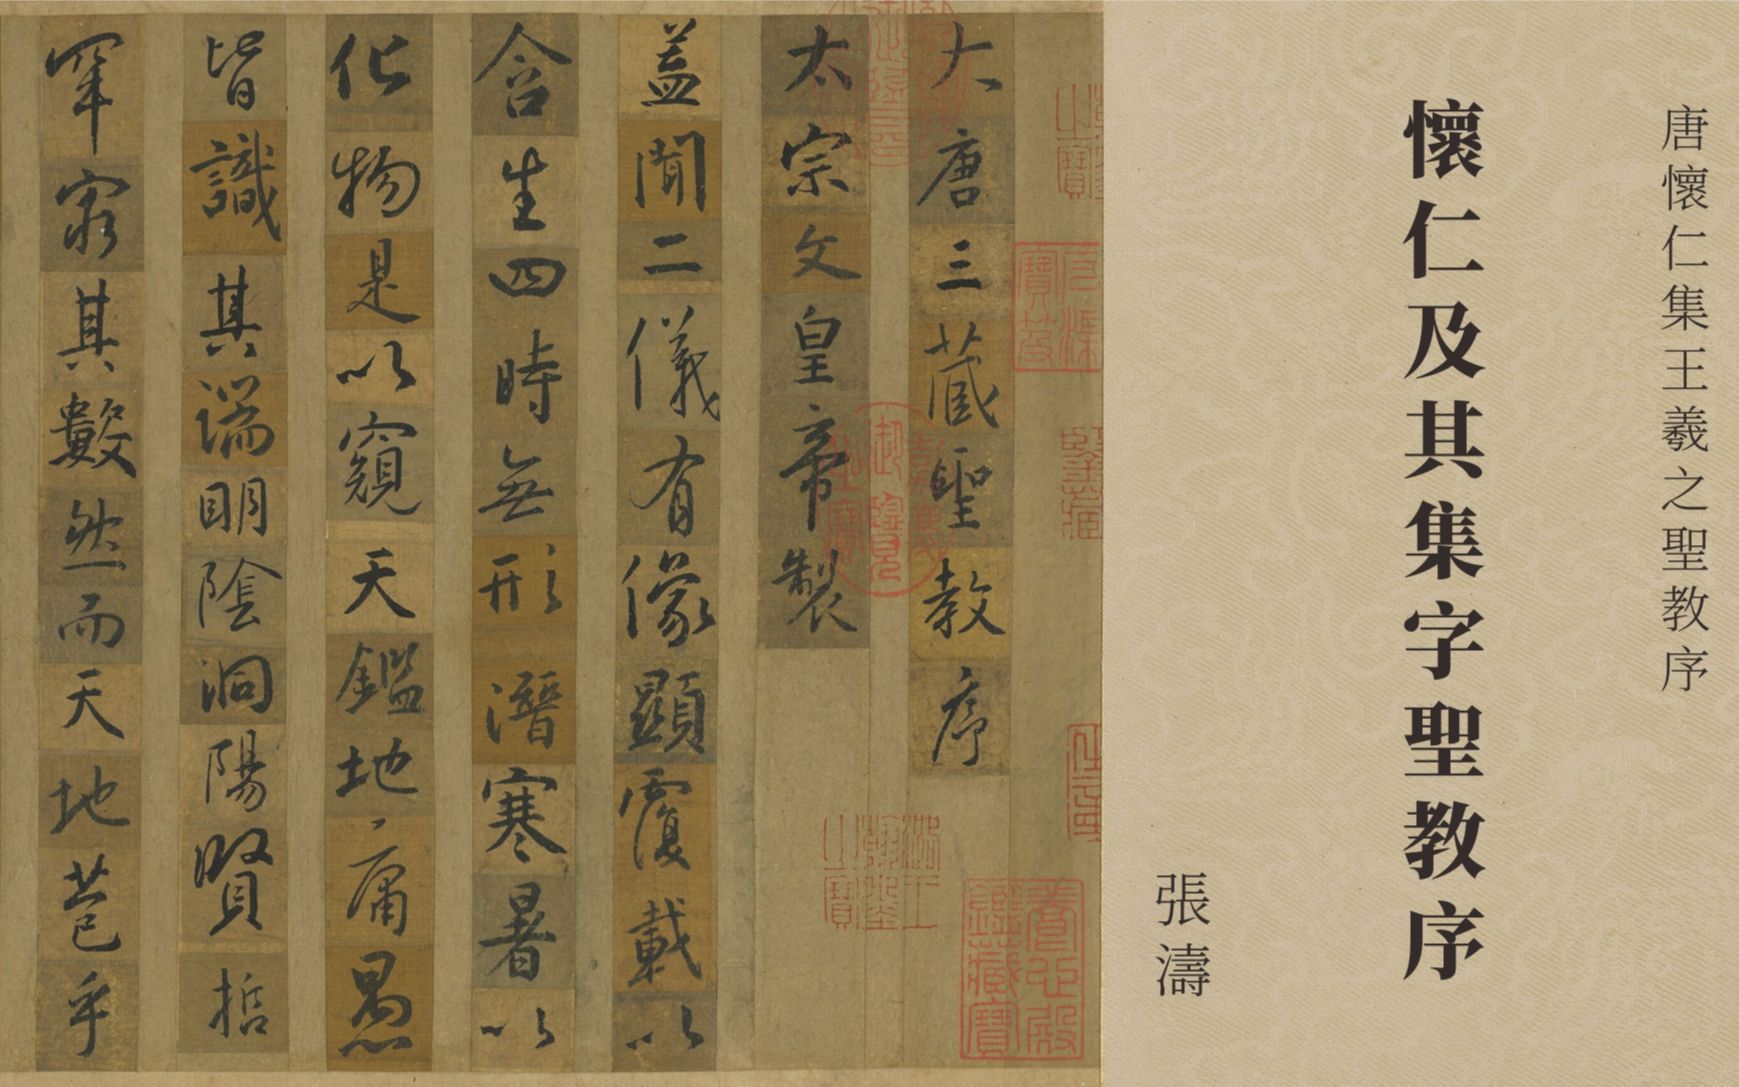 唐懷仁集王羲之聖教序
懷仁及其集字聖教序
張濤
大唐三藏聖教序
太宗文皇帝製
蓋聞二儀有像顯覆載以
含生四時無形潛寒暑以
化物是以窺天鑑地庸愚
皆識其端明陰洞陽賢哲
罕窮其數然而天地苞乎